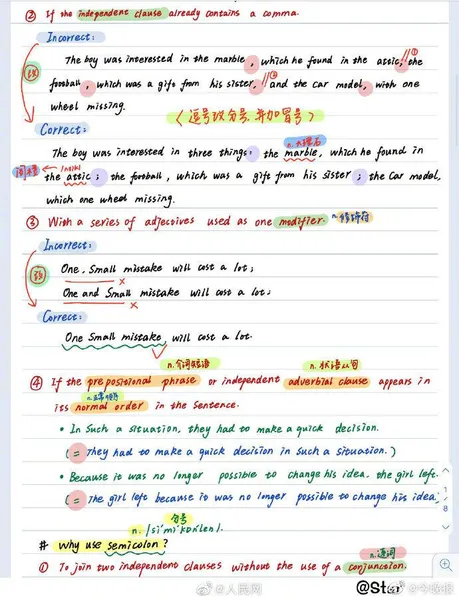 ② If the independent clause already contains a comma.
Incorrect:
The boy was interested in the marble, which he found in the attic, the
football, which was a gift from his sister, and the car model, with one
wheel missing.
〈逗号改分号,并加冒号〉
Correct:
n.大理石
The boy was interested in three things: the marble, which he found in
阁楼
the attic; the football, which was a gift from his sister; the Car model,
which one wheel missing.
③ With a series of adjectives used as one modifier. n.修饰符
Incorrect:
One, Small mistake will cost a lot;
One and Small mistake will cost a lot;
Correct:
One Small mistake will cost a lot.
n.介词短语 n.状语从句
④ If the prepositional phrase or independent adverbial clause appears in
its normal order in the sentence.
• In Such a situation, they had to make a quick decision.
(= They had to make a quick decision in such a situation.)
• Because it was no longer possible to change his idea, the girl left.
(= The girl left because it was no longer possible to change his idea.
分号
# Why use semicolon?
n.连词
① To join two independent clauses without the use of a conjunction.
1
8
@人民网
@Star
@今晚报